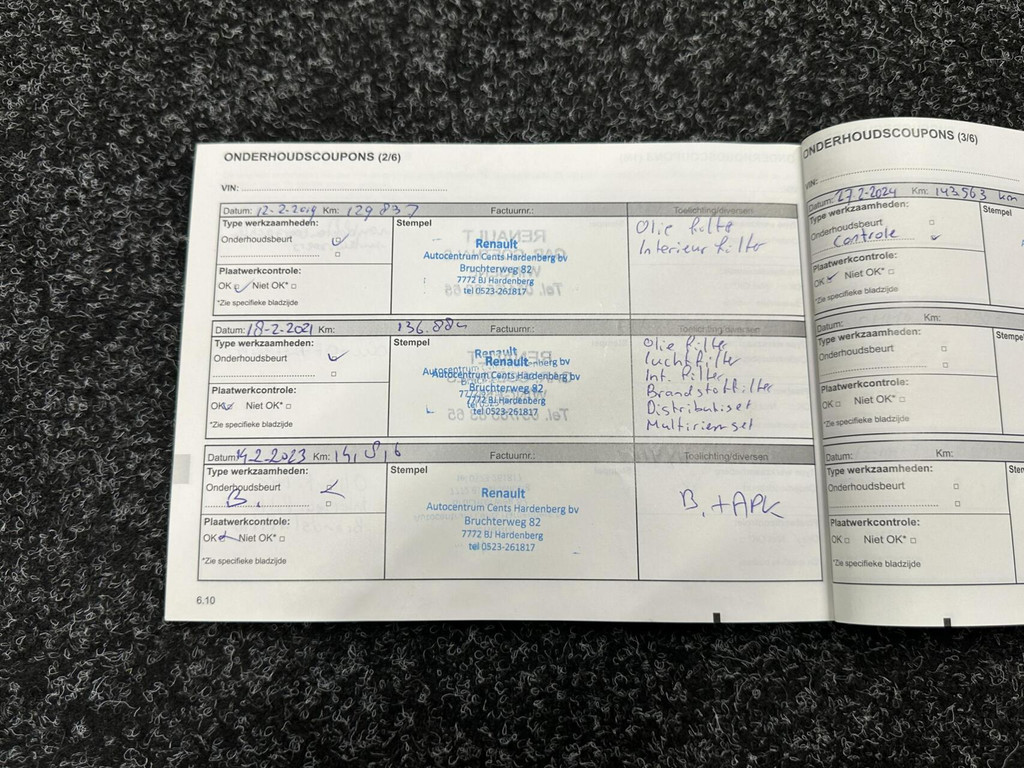 ONDERHOUDSCOUPONS (2/6)
VIN:
Datum: 12-2-2019 Km: 129837 Factuurnr.: Toelichting/diversen
Type werkzaamheden: Stempel
Onderhoudsbeurt
Plaatwerkcontrole:
OK Niet OK*
*Zie specifieke bladzijde
Renault
Autocentrum Cents Hardenberg bv
Bruchterweg 82
7772 BJ Hardenberg
tel 0523-261817
Olie filter
Interieur filter
Datum: 18-2-2021 Km: 136.884 Factuurnr.: Toelichting/diversen
Type werkzaamheden: Stempel
Onderhoudsbeurt
Plaatwerkcontrole:
OK Niet OK*
*Zie specifieke bladzijde
Renault
Renault
Autocentrum Cents Hardenberg bv
Bruchterweg 82
7772 BJ Hardenberg
tel 0523-261817
Olie filter
luchtfilter
Int. filter
Brandstoffilter
Distributieset
Multiriemset
Datum: 14-2-2023 Km: Factuurnr.: Toelichting/diversen
Type werkzaamheden: Stempel
Onderhoudsbeurt
B.
Plaatwerkcontrole:
OK Niet OK*
*Zie specifieke bladzijde
Renault
Autocentrum Cents Hardenberg bv
Bruchterweg 82
7772 BJ Hardenberg
tel 0523-261817
B. + APK
6.10
ONDERHOUDSCOUPONS (3/6)
VIN:
Datum: 27-2-2024 Km: 143563 km
Type werkzaamheden: Stempel
Onderhoudsbeurt
Controle
Plaatwerkcontrole:
OK Niet OK*
*Zie specifieke bladzijde
Datum: Km:
Type werkzaamheden: Stempe
Onderhoudsbeurt
Plaatwerkcontrole:
OK Niet OK*
*Zie specifieke bladzijde
Datum: Km:
Type werkzaamheden: Sten
Onderhoudsbeurt
Plaatwerkcontrole:
OK Niet OK*
*Zie specifieke bladzijde